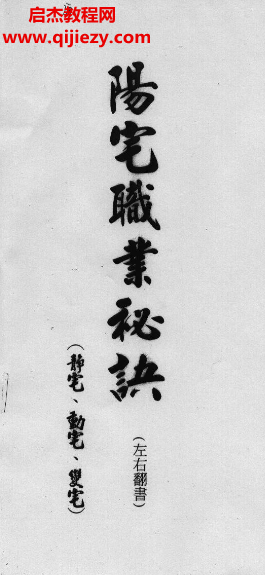 启杰教网程
www.qijiezy.com
陽宅職業祕訣
(左右翻書)
(靜宅、動宅、變宅)